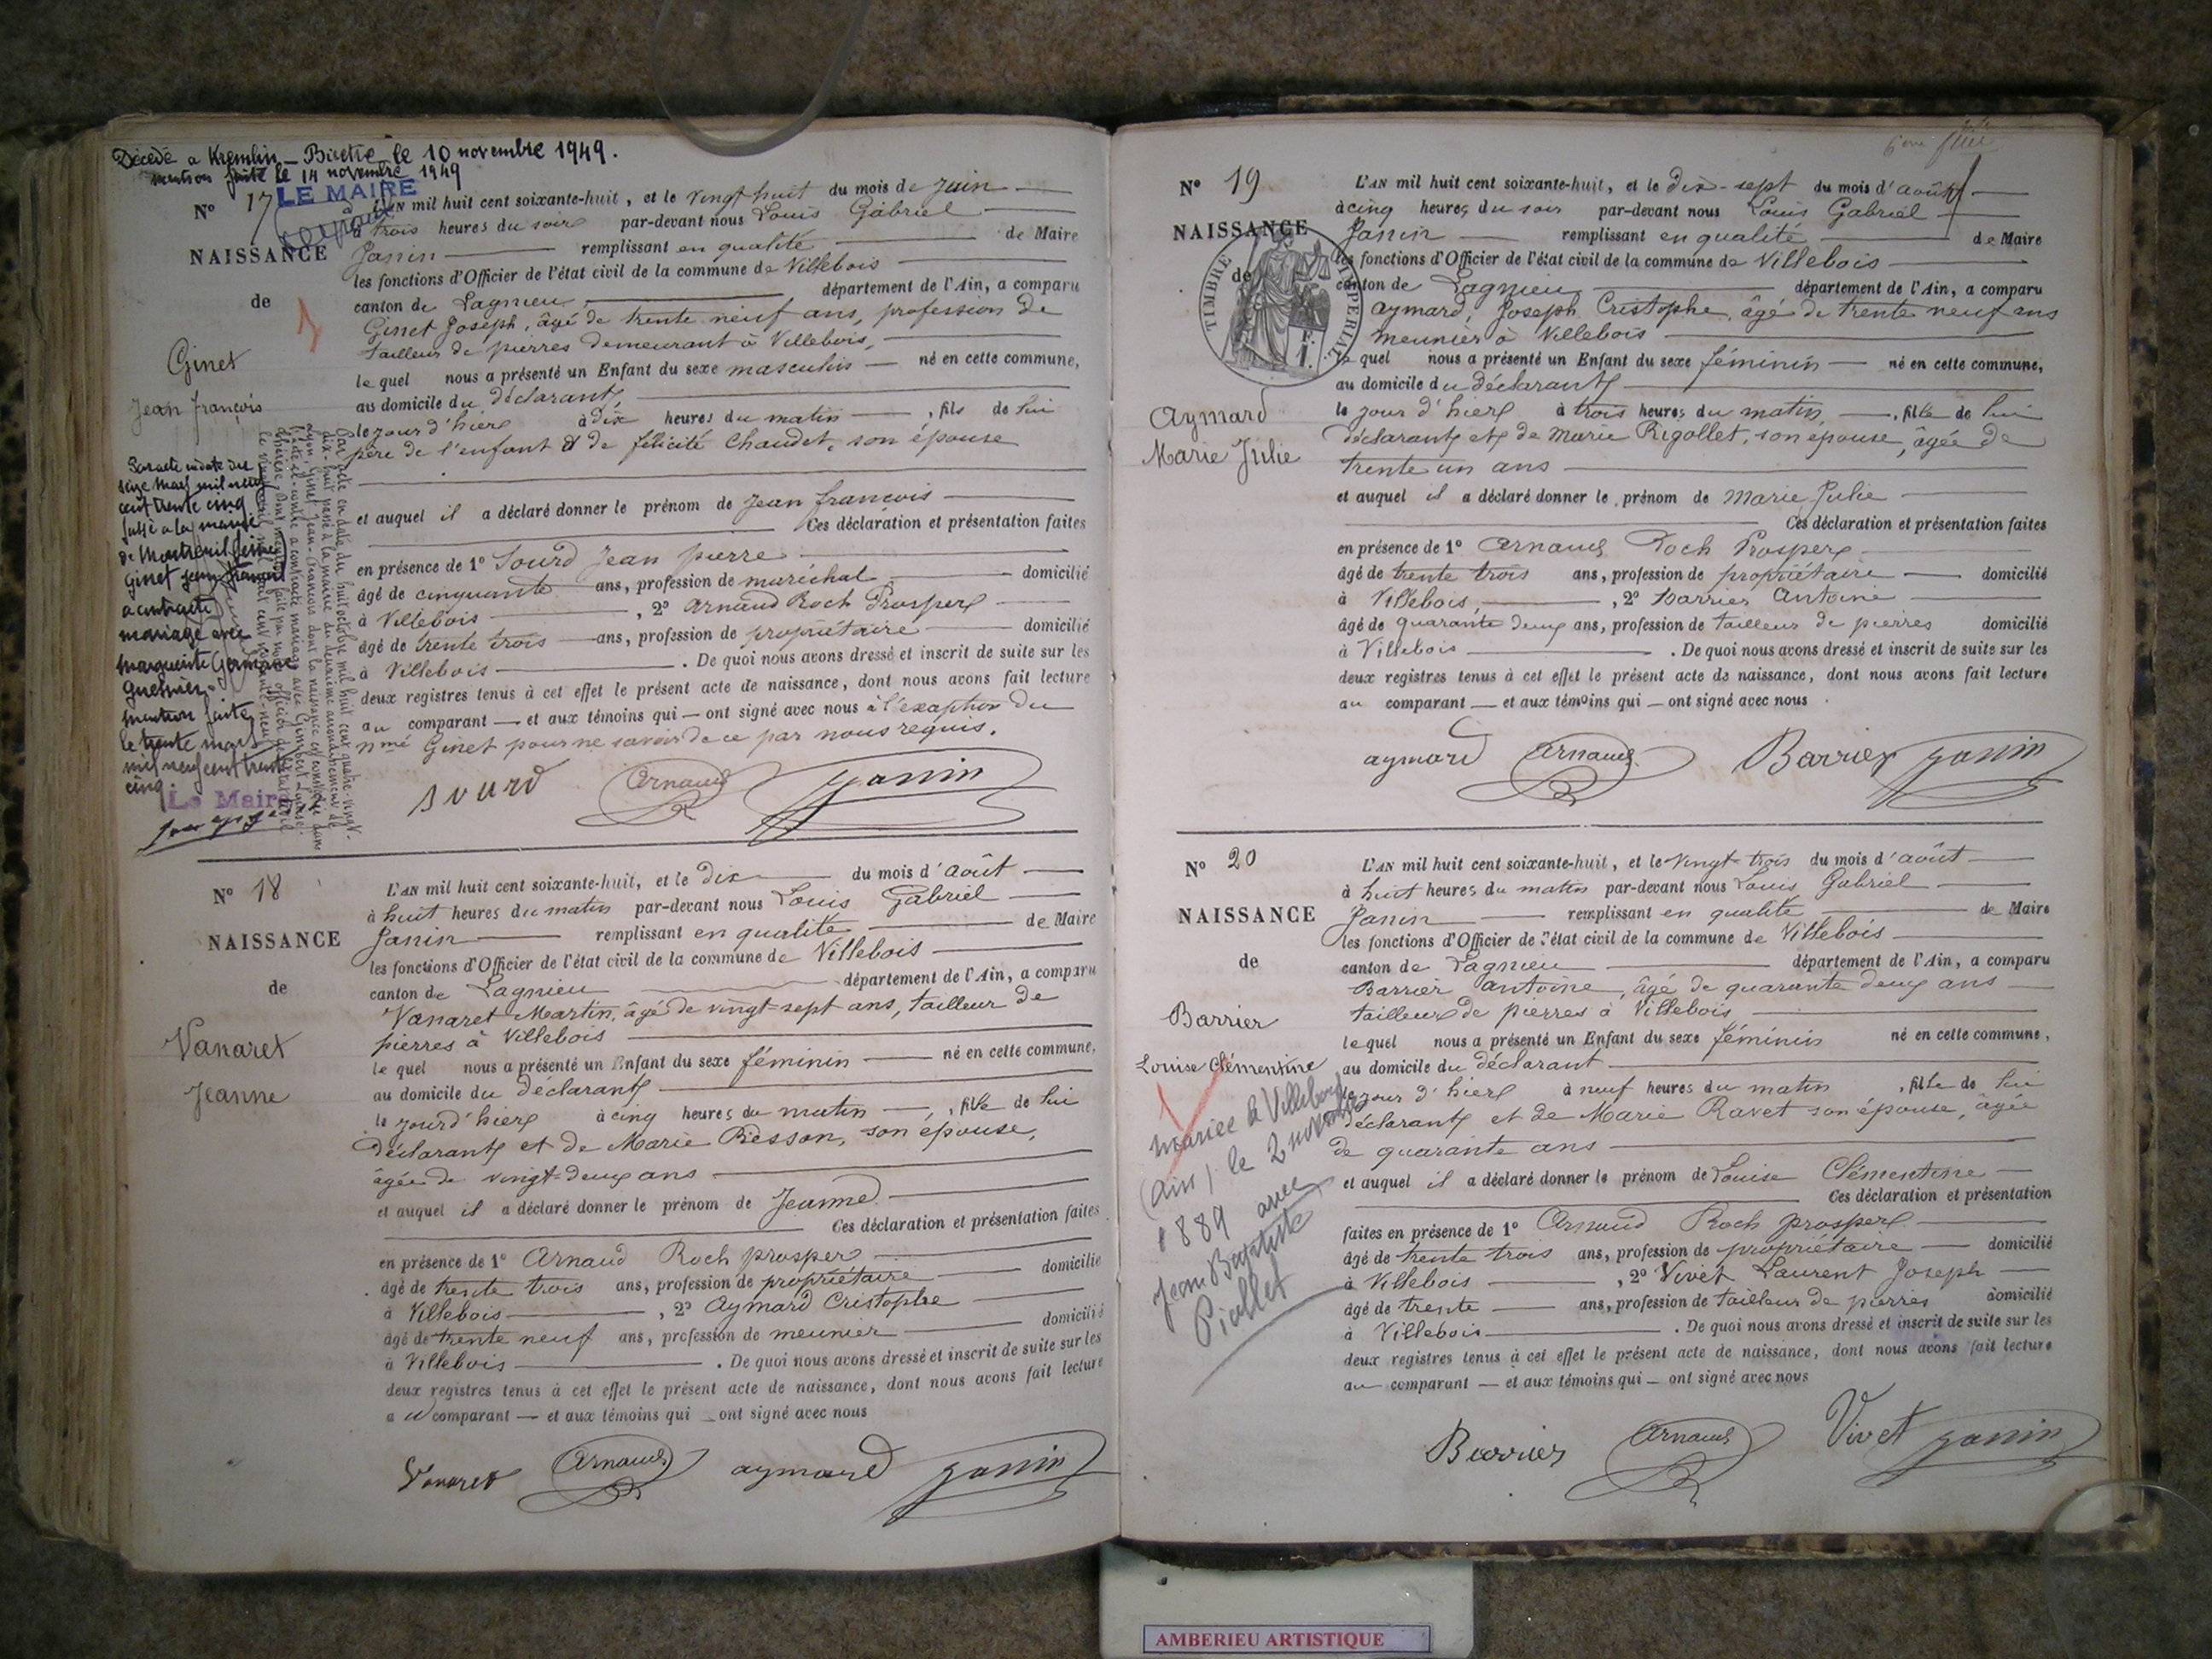 Décédé a Kremlin-Bicetre le 10 novembre 1949.
mention faite le 14 novembre 1949
LE MAIRE
N° 17
NAISSANCE
de
Ginet
Jean françois
L'AN mil huit cent soixante-huit, et le vingt huit du mois de juin
à trois heures du soir par-devant nous Louis Gabriel
Janin remplissant en qualité de Maire
les fonctions d'Officier de l'état civil de la commune de Villebois
canton de Lagnieu département de l'Ain, a comparu
Ginet Joseph, âgé de trente neuf ans, profession de
tailleur de pierres demeurant à Villebois,
le quel nous a présenté un Enfant du sexe masculin né en cette commune,
au domicile du déclarant,
le jour d'hier à dix heures du matin, fils de lui
père de l'enfant & de félicité Chaudet, son épouse
et auquel il a déclaré donner le prénom de Jean françois
Ces déclaration et présentation faites
en présence de 1° Sourd Jean pierre
âgé de cinquante ans, profession de maréchal domicilié
à Villebois, 2° Arnaud Roch Prosper
âgé de trente trois ans, profession de propriétaire domicilié
à Villebois. De quoi nous avons dressé et inscrit de suite sur les
deux registres tenus à cet effet le présent acte de naissance, dont nous avons fait lecture
au comparant et aux témoins qui ont signé avec nous à l'exeption du
nmé Ginet pour ne savoir de ce par nous requis.
Sourd Arnaud Janin
Par acte en date du
seize mars mil neuf
cent trente cinq
passé a la mairie
de Montreuil (Seine)
Ginet Jean françois
a contracté
mariage avec
Marguerite Germaine
mention faite
le trente mars
mil neuf cent trente
cinq.
Le Maire
Par acte en date du huit octobre mil huit cent quatre-vingt-
N° 18
NAISSANCE
de
Vanaret
Jeanne
L'AN mil huit cent soixante-huit, et le dix du mois d'août
à huit heures du matin par-devant nous Louis Gabriel
Janin remplissant en qualité de Maire
les fonctions d'Officier de l'état civil de la commune de Villebois
canton de Lagnieu département de l'Ain, a comparu
Vanaret Martin, âgé de vingt-sept ans, tailleur de
pierres à Villebois
le quel nous a présenté un Enfant du sexe féminin né en cette commune,
au domicile du déclarant
le jour d'hier à cinq heures du matin, fille de lui
déclarant et de Marie Besson, son épouse,
âgée de vingt-deux ans
et auquel il a déclaré donner le prénom de Jeanne
Ces déclaration et présentation faites
en présence de 1° Arnaud Roch prosper
âgé de trente trois ans, profession de propriétaire domicilié
à Villebois, 2° Aymard Cristophe
âgé de trente neuf ans, profession de meunier domicilié
à Villebois. De quoi nous avons dressé et inscrit de suite sur les
deux registres tenus à cet effet le présent acte de naissance, dont nous avons fait lecture
au comparant et aux témoins qui ont signé avec nous
Vanaret Arnaud aymard Janin
N° 19
NAISSANCE
de
TIMBRE IMPERIAL
Aymard
Marie Julie
L'AN mil huit cent soixante-huit, et le dix-sept du mois d'août
à cinq heures du soir par-devant nous Louis Gabriel
Janin remplissant en qualité de Maire
les fonctions d'Officier de l'état civil de la commune de Villebois
canton de Lagnieu département de l'Ain, a comparu
Aymard, Joseph Cristophe, âgé de trente neuf ans
meunier à Villebois
le quel nous a présenté un Enfant du sexe féminin né en cette commune,
au domicile du déclarant
le jour d'hier à trois heures du matin, fille de lui
déclarant et de Marie Rigollet, son épouse, âgée de
trente un ans
et auquel il a déclaré donner le prénom de Marie Julie
Ces déclaration et présentation faites
en présence de 1° Arnaud Roch Prosper
âgé de trente trois ans, profession de propriétaire domicilié
à Villebois, 2° Barrier Antoine
âgé de quarante deux ans, profession de tailleur de pierres domicilié
à Villebois. De quoi nous avons dressé et inscrit de suite sur les
deux registres tenus à cet effet le présent acte de naissance, dont nous avons fait lecture
au comparant et aux témoins qui ont signé avec nous
aymard Arnaud Barrier Janin
N° 20
NAISSANCE
de
Barrier
Louise Clémentine
mariée à Villebois
(Ain) le 2 novembre
1889 avec
Jean Baptiste
Piollet
L'AN mil huit cent soixante-huit, et le vingt-trois du mois d'août
à huit heures du matin par-devant nous Louis Gabriel
Janin remplissant en qualité de Maire
les fonctions d'Officier de l'état civil de la commune de Villebois
canton de Lagnieu département de l'Ain, a comparu
Barrier Antoine, âgé de quarante deux ans
tailleur de pierres à Villebois
lequel nous a présenté un Enfant du sexe féminin né en cette commune,
au domicile du déclarant
le jour d'hier à neuf heures du matin, fille de lui
déclarant et de Marie Ravet son épouse, âgée
de quarante ans
et auquel il a déclaré donner le prénom de Louise Clémentine
Ces déclaration et présentation
faites en présence de 1° Arnaud Roch prosper
âgé de trente trois ans, profession de propriétaire domicilié
à Villebois, 2° Vivet Laurent Joseph
âgé de trente ans, profession de tailleur de pierres domicilié
à Villebois. De quoi nous avons dressé et inscrit de suite sur les
deux registres tenus à cet effet le présent acte de naissance, dont nous avons fait lecture
au comparant et aux témoins qui ont signé avec nous
Barrier Arnaud Vivet Janin
AMBERIEU ARTISTIQUE